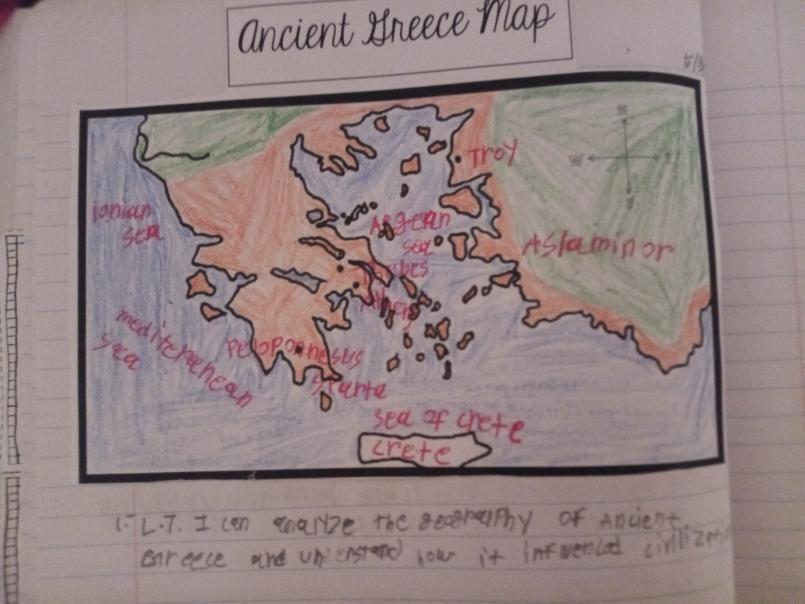 Ancient Greece Map
5/3
N
W
E
S
Troy
ionian
sea
Aegean
sea
Asiaminor
Thebes
Athens
mediterranean
sea
Peloponnesus
Sparta
sea of crete
crete
1. L.T. I can analyze the geography of Ancient
Greece and understand how it influenced